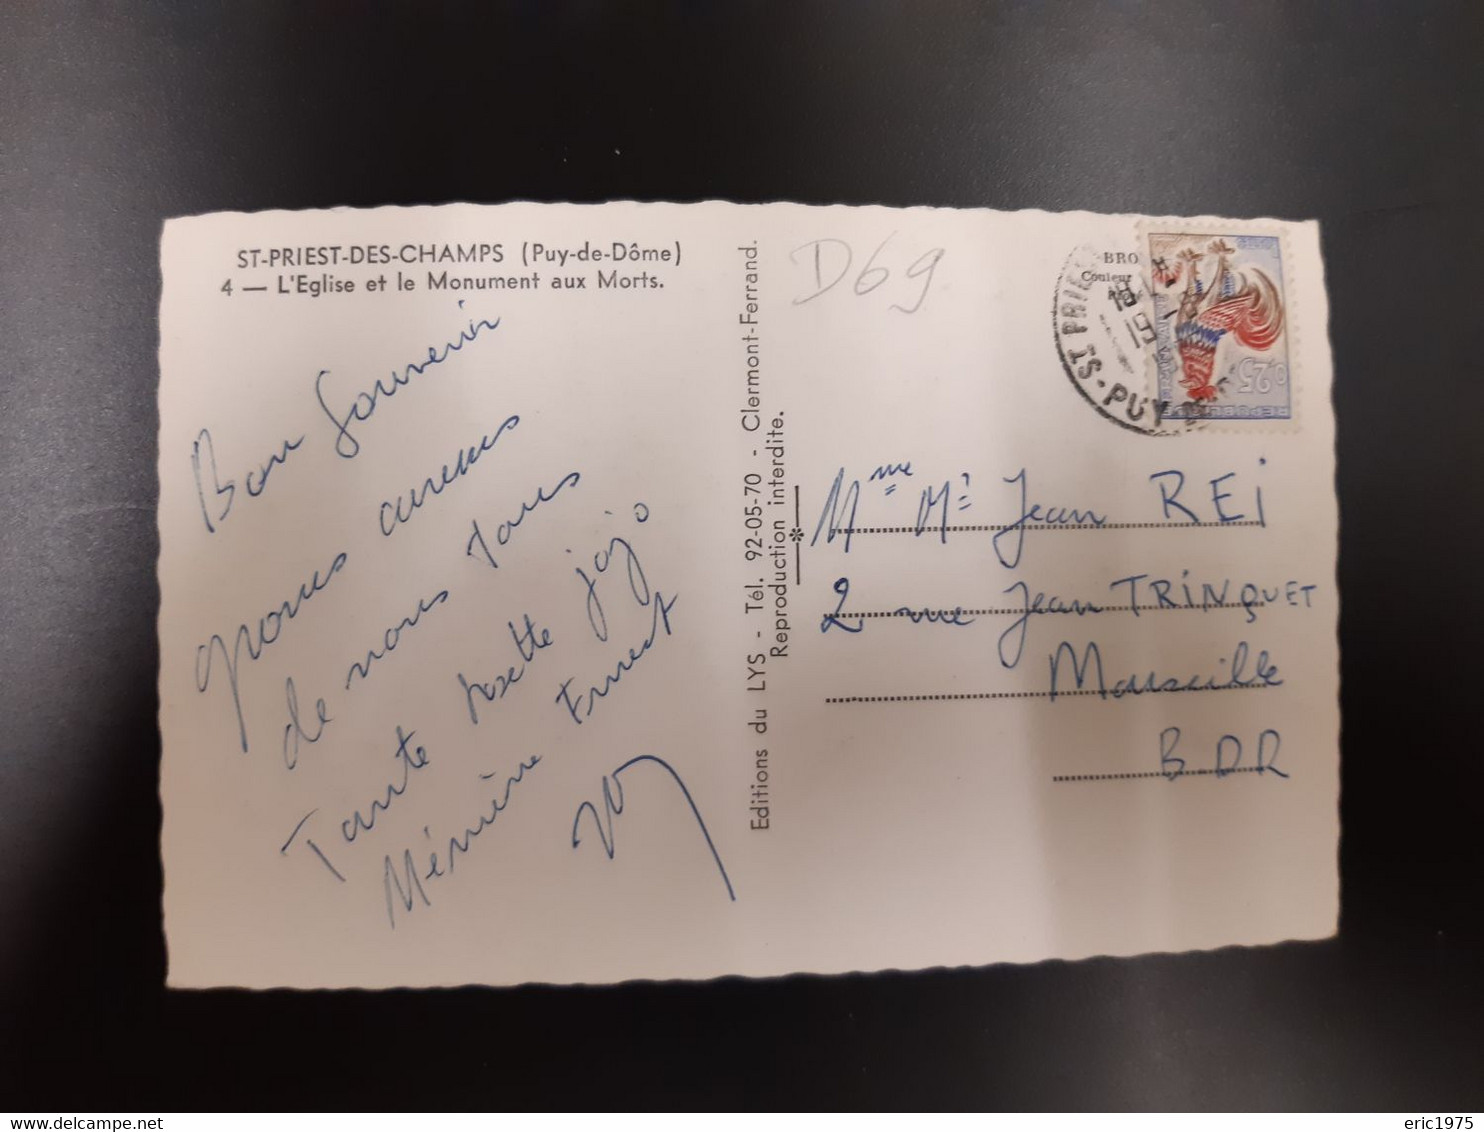 ST-PRIEST-DES-CHAMPS (Puy-de-Dôme)
4 — L'Eglise et le Monument aux Morts.
Bon Souvenir
nous
de nous tous
Tante Josette jojo
Mémère Ernest
Editions du LYS - Tél. 92-05-70 - Clermont-Ferrand.
Reproduction interdite.
D69
BRO
Couleur
ST PRIE
PUY DE
19
0,25
REPUBLIQUE
Mme Mr Jean REI
2 rue Jean TRINQUET
Marseille
B.D.R
eric1975